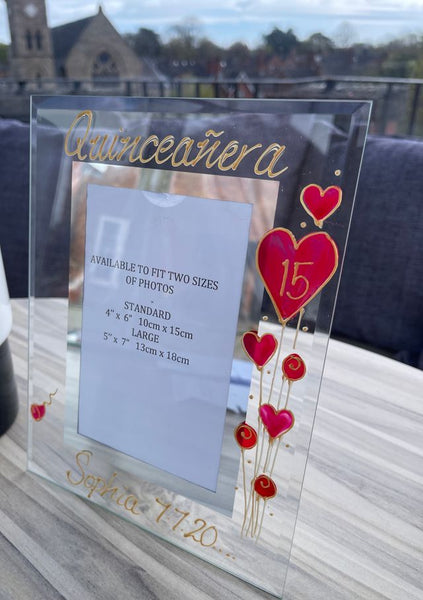 Quinceañera
15
AVAILABLE TO FIT TWO SIZES
OF PHOTOS
-
STANDARD
4" x 6" 10cm x 15cm
LARGE
5" x 7" 13cm x 18cm
Sophia 7.7.20...